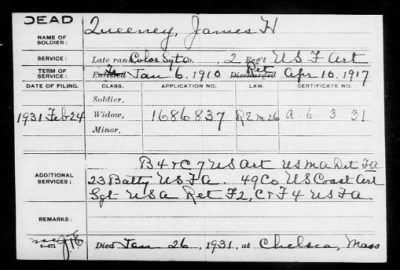 DEAD
NAME OF SOLDIER: Queeney, James H
SERVICE: Late rank Color Sgt Co. 2 Reg't US F Art
TERM OF SERVICE: Enlisted Jan 6, 1910 Discharged Ret Apr 10, 1917
DATE OF FILING. CLASS. APPLICATION NO. LAW. CERTIFICATE NO.
Soldier,
1931 Feb 24 Widow, 1686837 A 6 3 31
Minor,
B & C 7 US Art USMA Det FA
ADDITIONAL SERVICES: 23 Batty US F A. 49 Co US Coast Art
Sgt USA Ret F 2, C & F 4 US F A
REMARKS:
Died Jan 26, 1931, at Chelsea, Mass